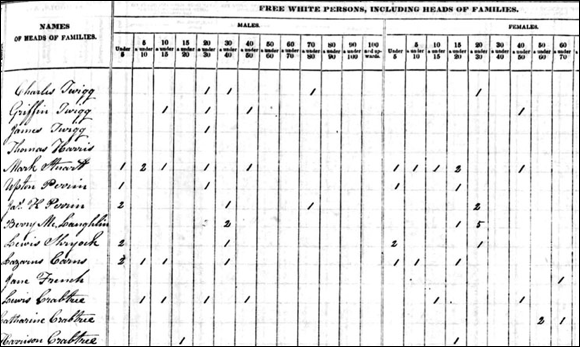 FREE WHITE PERSONS, INCLUDING HEADS OF FAMILIES.
NAMES
OF HEADS OF FAMILIES.
MALES.
FEMALES.
Under 5 5 & under 10 10 & under 15 15 & under 20 20 & under 30 30 & under 40 40 & under 50 50 & under 60 60 & under 70 70 & under 80 80 & under 90 90 & under 100 100 and upwards. Under 5 5 & under 10 10 & under 15 15 & under 20 20 & under 30 30 & under 40 40 & under 50 50 & under 60 60 & under 70
Charles Twigg 1 1 1 1
Griffin Twigg 1 1 1 1
James Twigg 1
Thomas Harris
Mark Stuart 1 2 1 1 1 1 1 1 2 1
Upton Perrin 1 1 1 1
Jas. H Perrin 2 1 1 2
Berry Mc Laughlin 2 1 5
Lewis Shryock 2 1 2 1
Lazarus Carns 2 1 1 1 1 1 1
Jane French 1
Lewis Crabtree 1 1 1 1 1 1
Catharine Crabtree 2 1
Harrison Crabtree 1 1